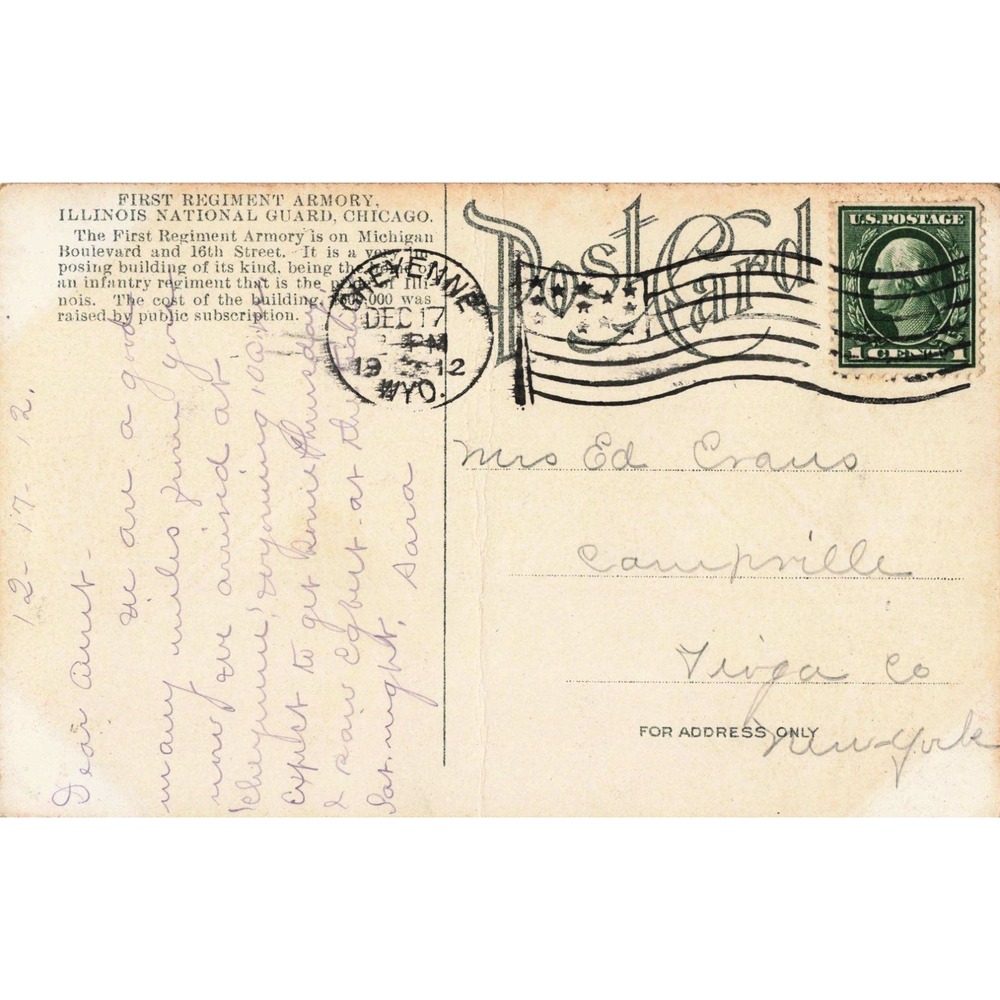 FIRST REGIMENT ARMORY,
ILLINOIS NATIONAL GUARD, CHICAGO.
The First Regiment Armory is on Michigan
Boulevard and 16th Street. It is a very
posing building of its kind, being the
an infantry regiment that is the of Illi-
nois. The cost of the building, 000 was
raised by public subscription.
Post Card
CHEYENNE
DEC 17
PM
1912
WYO.
U.S. POSTAGE
1 CENT 1
Mrs Ed Evans
Campville
Tioga Co
FOR ADDRESS ONLY
New-York
12-17-12.
Dear Aunt-
We are a good
many miles from you
now we arrived at
"Cheyenne", Wyoming 10
expect to get home Thursday
& saw Egbert at the
Sat. night, Sara